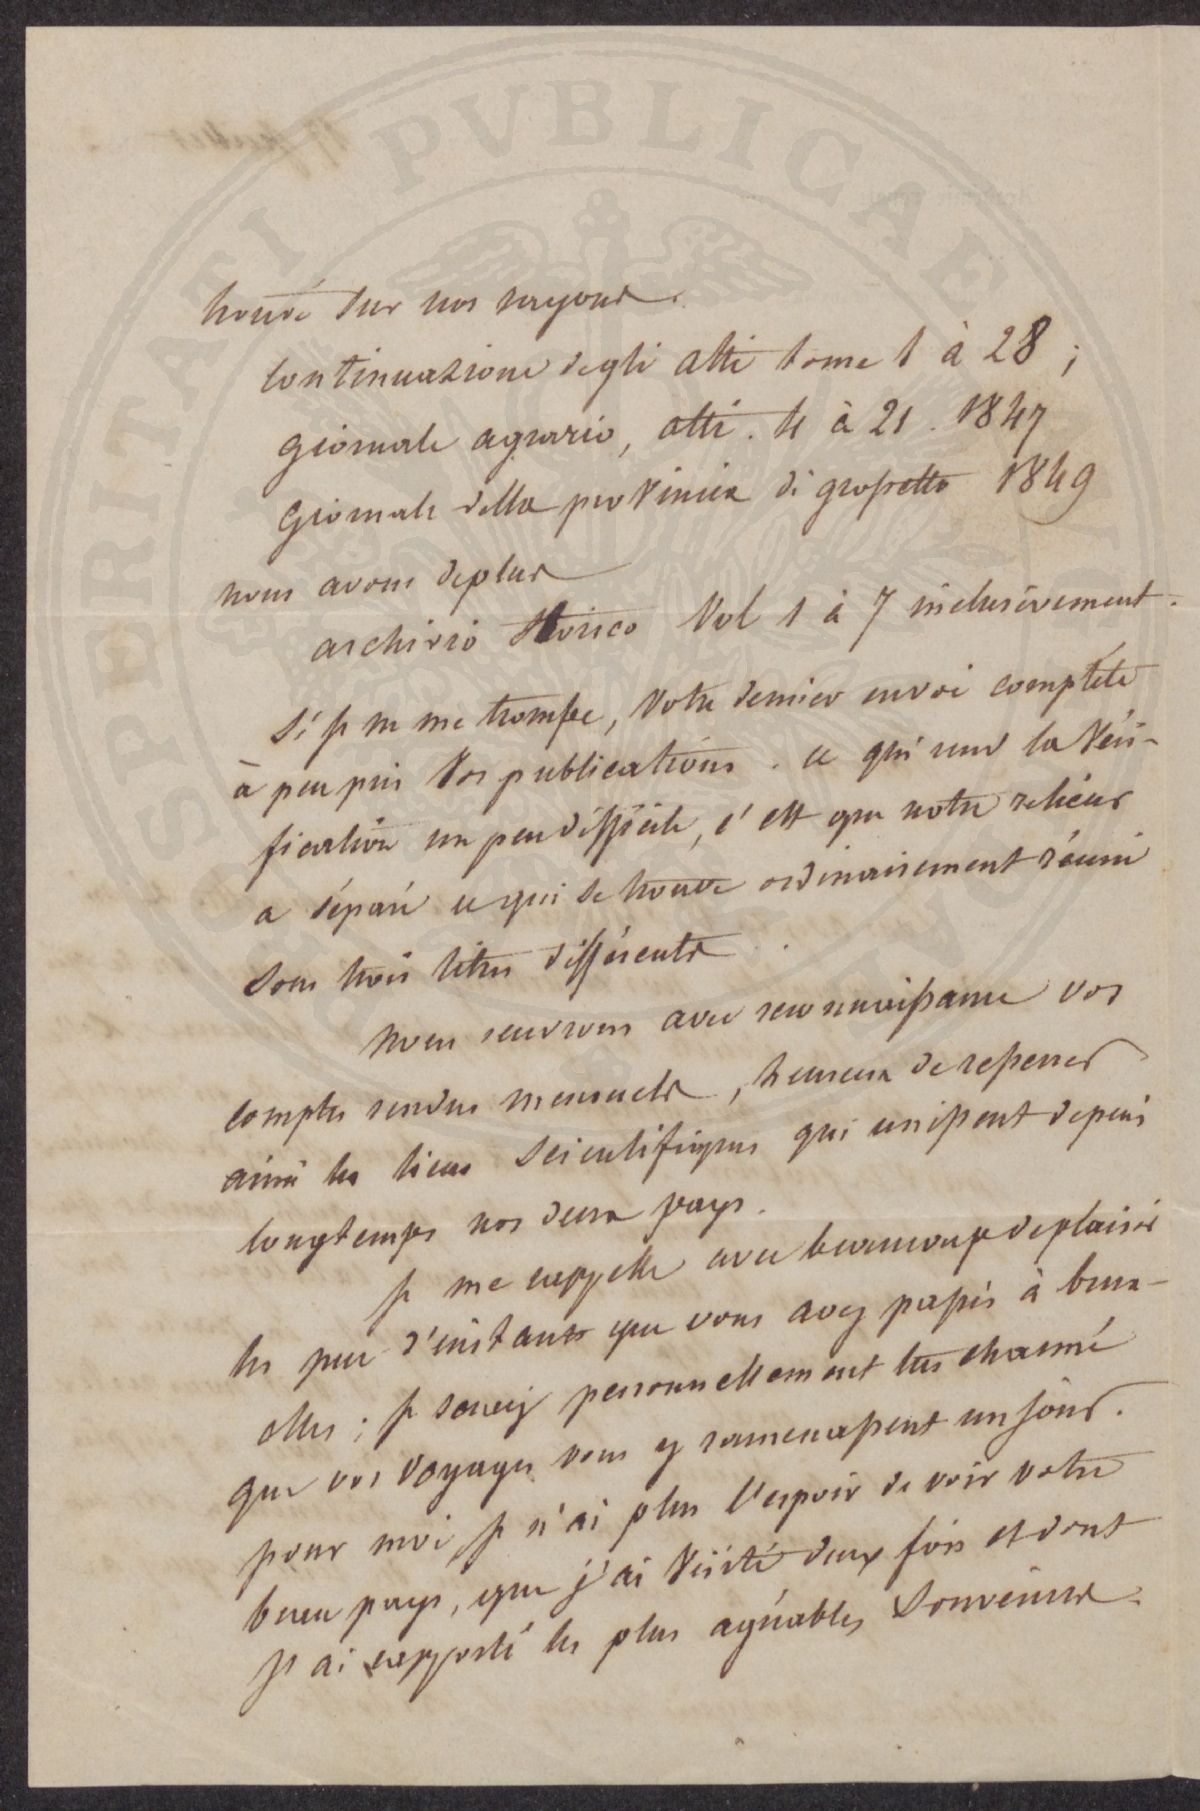 trouvé sur nos rayons.
Continuazione degli atti tome 1 à 28 ;
giornale agrario, atti. 4 à 21. 1847
giornale della provincia di grosseto 1849
nous avons deplus
archivio storico Vol 1 à 7 inclusivement.
Si je ne me trompe, votre dernier envoi complète
à peu près vos publications. ce qui rend la véri-
fication un peu difficile, c'est que notre relieur
a séparé ce qui se trouve ordinairement réuni
sous trois titres différents.
nous recevrons avec reconnaissance vos
comptes rendus mensuels, heureux de resserrer
ainsi les liens scientifiques qui unissent depuis
longtemps nos deux pays.
je me rappelle avec beaucoup de plaisir
les peu d'instants que vous avez passés à brux-
elles ; je serais personnellement très charmé
que vos voyages vous y ramenassent un jour.
pour moi je n'ai plus l'espoir de voir votre
beau pays, que j'ai visité deux fois et dont
j'ai rapporté les plus agréables souvenirs.
PROSPERITATI PVBLICAE